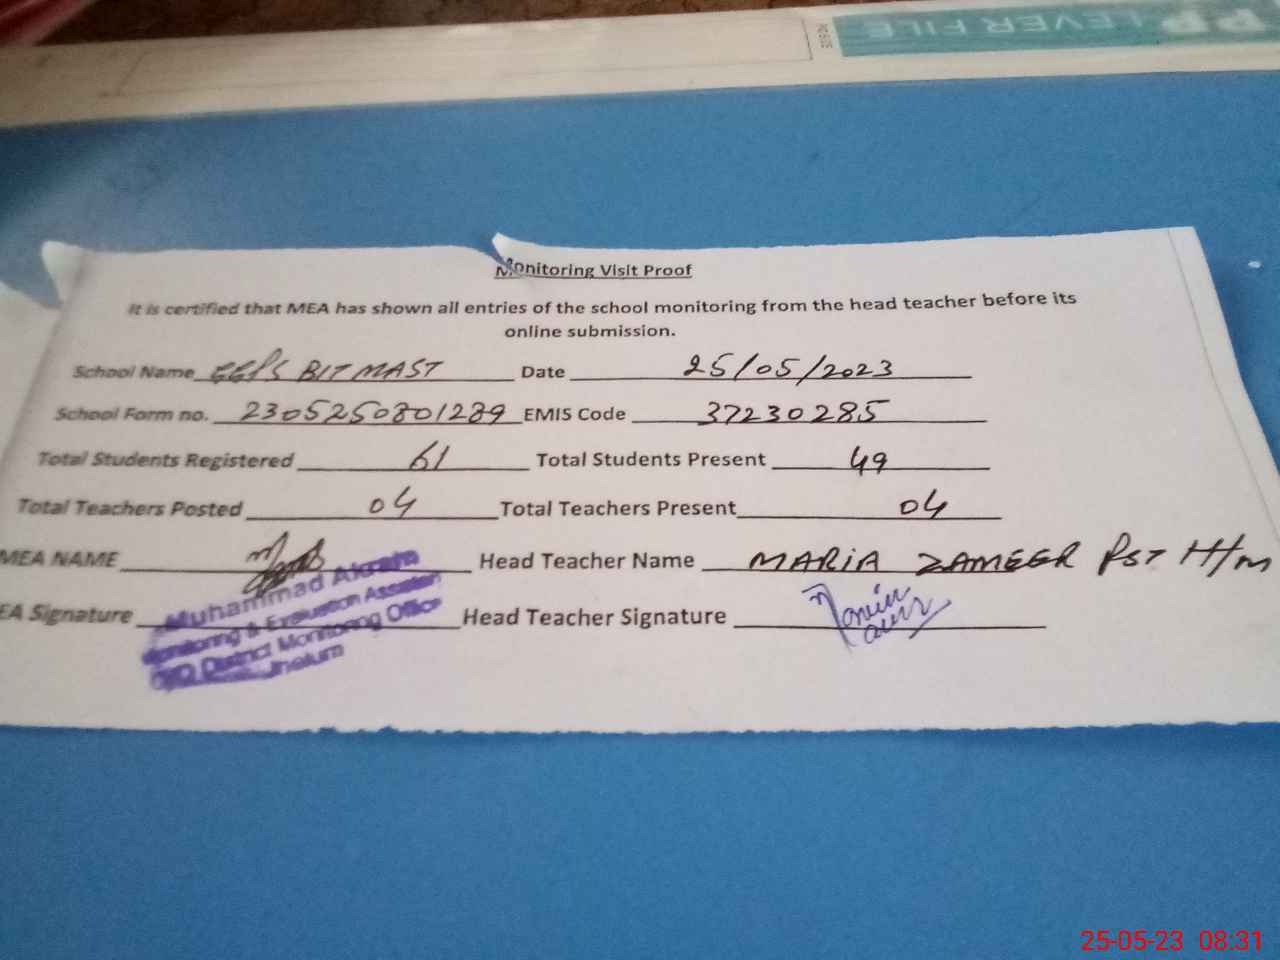 PP LEVER FILE
Monitoring Visit Proof
It is certified that MEA has shown all entries of the school monitoring from the head teacher before its
online submission.
School Name GGPS BIT MAST Date 25/05/2023
School Form no. 2305250801289 EMIS Code 37230285
Total Students Registered 61 Total Students Present 49
Total Teachers Posted 04 Total Teachers Present 04
MEA NAME Head Teacher Name MARIA ZAMEER PST H/m
EA Signature Head Teacher Signature
Muhammad Akram
Monitoring & Evaluation Assistant
District Monitoring Office
Jhelum
25-05-23 08:31